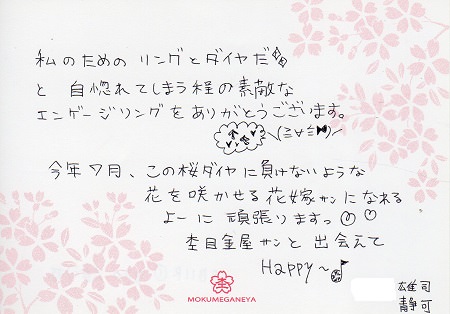 私のための リングとダイヤだ
と 自惚れてしまう程の素敵な
エンゲージリングをありがとうございます。
今年7月、この桜ダイヤに負けないような
花を咲かせる花嫁サンになれる
よーに頑張りますっ
杢目金屋サンと出会えて
Happy〜♪
MOKUMEGANEYA
雄司
静可